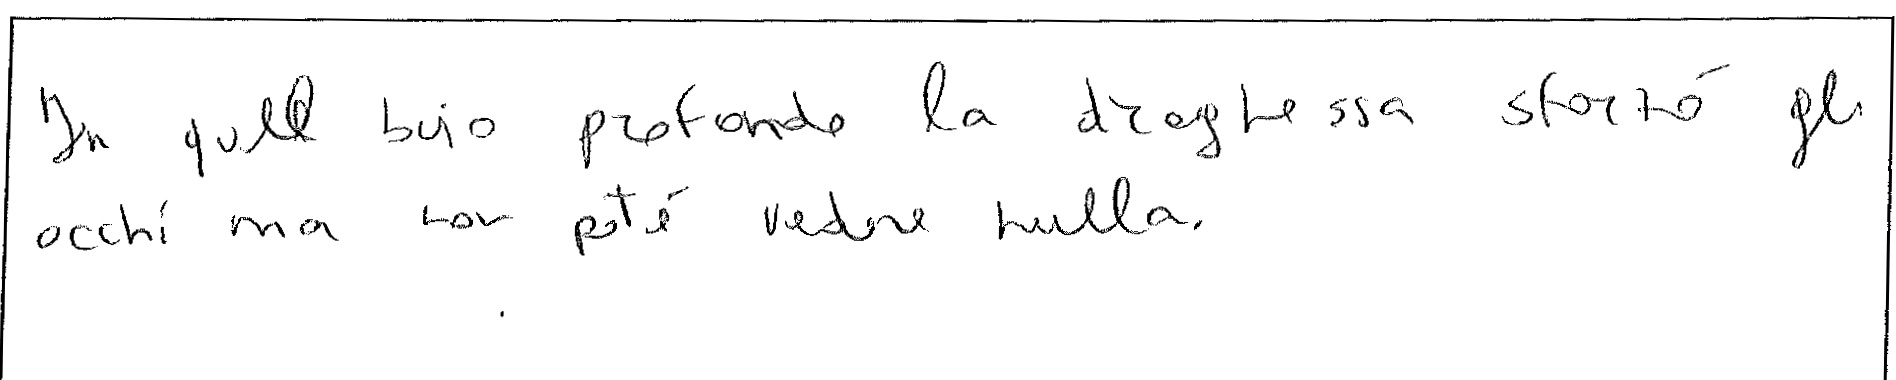 In quell bujo profondo la draghessa sforzó gli
occhi ma non poté vedere nulla.